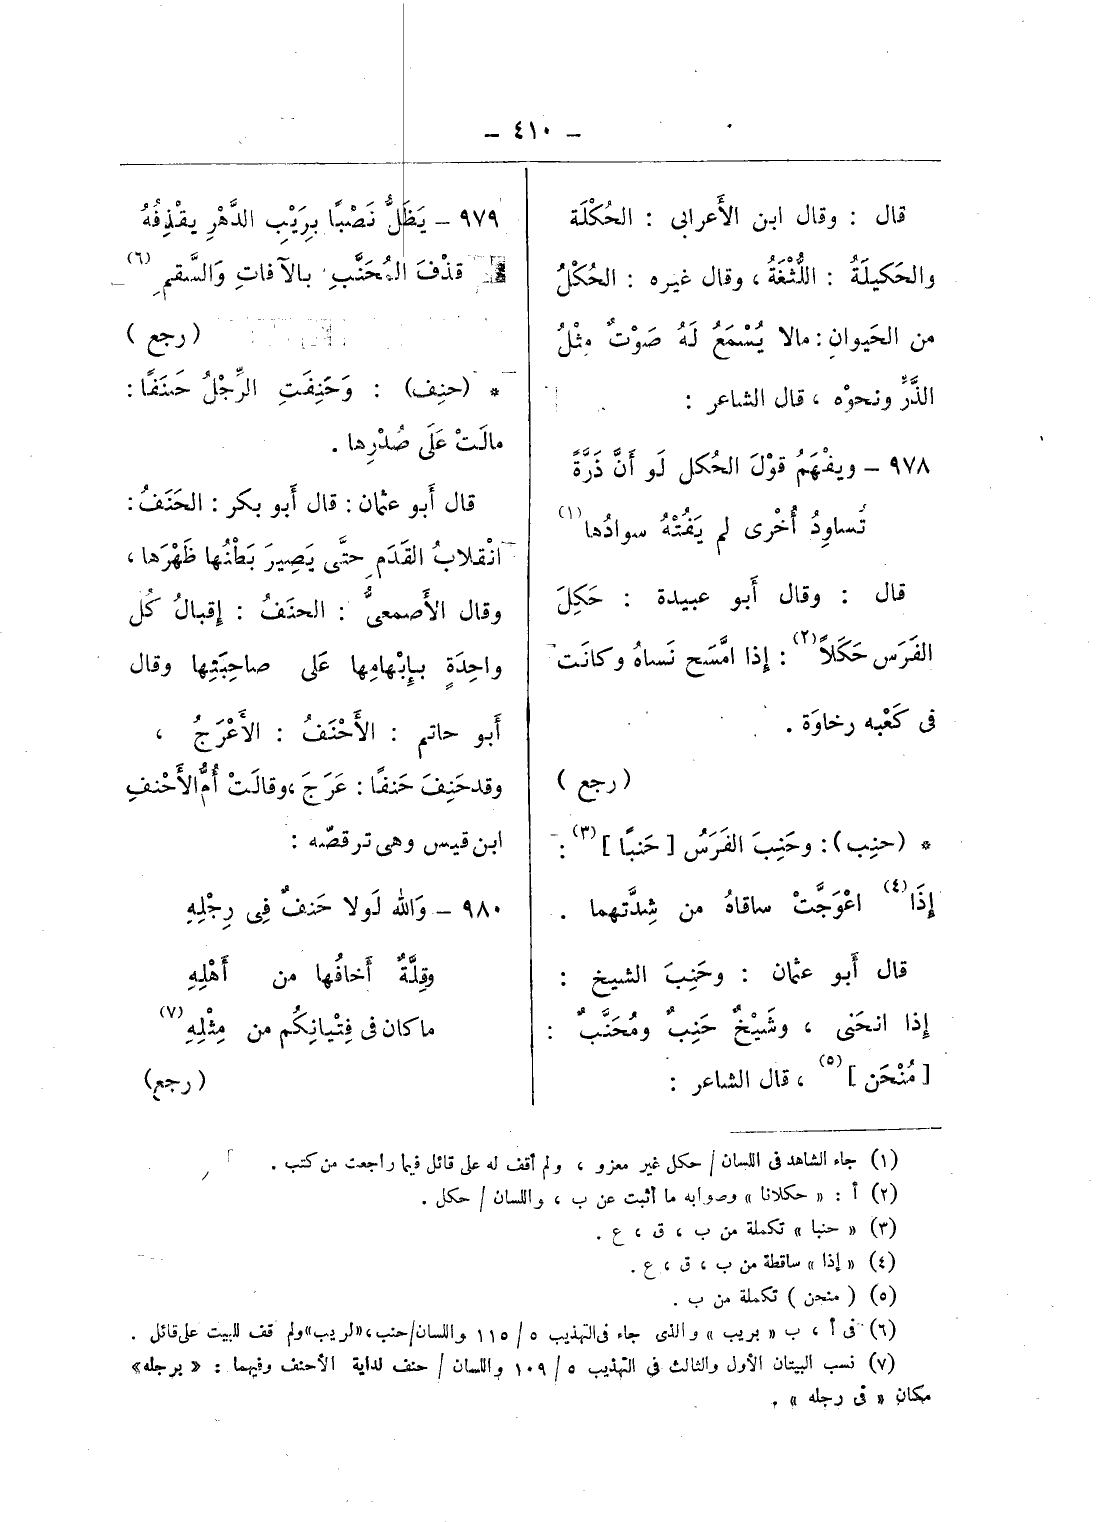 — ٤١٠ —
قال : وقال ابن الأَعرابى : الحُكْلَة
والحَكيلَةُ : اللُّثْغَةُ ، وقال غيره : الحُكْلُ
من الحَيوانِ : مالا يُسْمَعُ لَهُ صَوْتٌ مِثْلُ
الذَّرِّ ونحوْه ، قال الشاعر :
٩٧٨ – ويفْهَمُ قوْلَ الحُكل لَو أَنَّ ذَرَّةً
تُساوِدُ أُخْرى لم يَفُتْهُ سوادُها (١)
قال : وقال أَبو عبيدة : حَكِلَ
الفَرَس حَكَلاً (٢) : إِذا امَّسَح نَساهُ وكانَت
فى كَعْبه رخاوَة .
( رجع )
* (حنِب) : وحَنِبَ الفَرَسُ [ حَنبًا ] (٣) :
إِذَا (٤) اعْوَجَّتْ ساقاهُ من شِدَّتهما .
قال أَبو عثمان : وحَنِبَ الشيخ :
إِذا انحَنى ، وشَيْخٌ حَنِبٌ ومُحَنَّبٌ :
[ مُنْحَن ] (٥) ، قال الشاعر :
٩٧٩ – يَظَلُّ نَصْبًا بِرَيْبِ الدَّهْرِ يقْذِفُهُ
قذْفَ المُحَنَّبِ بالآفاتِ وَالسَّقمِ (٦)
( رجع )
* (حنِف) : وَحَنِفَتِ الرِّجْلُ حَنَفًا :
مالَتْ عَلَى صُدْرِها .
قال أَبو عثمان : قال أَبو بكر : الحَنَفُ :
انْقلابُ القَدَمِ حتَّى يَصِيرَ بَطْنُها ظَهْرَها ،
وقال الأَصمعىُّ : الحنَفُ : إقبالُ كُل
واحِدَةٍ بإِبْهامِها عَلى صاحِبَتِها وقال
أَبو حاتم : الأَحْنَفُ : الأَعْرَجُ ،
وقد حَنِفَ حَنفًا : عَرَجَ ، وقالَتْ أُمُّ الأَحْنفِ
ابن قيس وهى ترقصّه :
٩٨٠ – وَالله لَولا حَنفٌ فِى رِجْلِهِ
وقِلَّةٌ أَخافُها من أَهْلِهِ
ماكان فى فِتْيانِكُم من مِثْلِهِ (٧)
(رجع)
(١) جاء الشاهد فى اللسان / حكل غير معزو ، ولم أقف له على قائل فيما راجعت من كتب .
(٢) أ : « حكلانا » وصوابه ما أثبت عن ب ، واللسان / حكل .
(٣) « حنبا » تكملة من ب ، ق ، ع .
(٤) « إذا » ساقطة من ب ، ق ، ع .
(٥) ( منحن ) تكملة من ب .
(٦) فى أ ، ب « بريب » والذى جاء فى التهذيب ٥ / ١١٥ واللسان/حنب ، «لريب» ولم قف للبيت على قائل .
(٧) نسب البيتان الأول والثالث فى التهذيب ٥ / ١٠٩ واللسان / حنف لداية الأحنف وفيهما : « برجله »
مكان « فى رجله » .